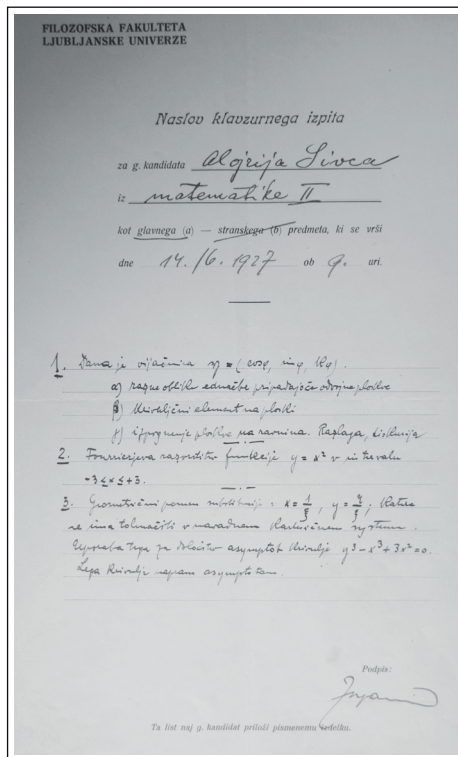 FILOZOFSKA FAKULTETA
LJUBLJANSKE UNIVERZE
Naslov klavzurnega izpita
za g. kandidata Alojzija Sivca
iz matematike II
kot glavnega (a) — stranskega (b) predmeta, ki se vrši
dne 14./6. 1927 ob 9. uri.
1. Dana je vijačnica η = (cosφ, sinφ, kφ).
α) razne oblike enačbe pripadajoče odvojne ploskve
β) Krivuljični element na ploski
γ) izpognenje ploskve na ravnina. Razlaga, diskusija
2. Fourierjeva razvrstitev funkcije y = x² v intervalu
-3 ≤ x ≤ +3.
3. Geometrični pomen substitucije: x = 1/ξ, y = η/ξ; Katera
se ima tolmačiti v navadnem Kartezičnem systemu.
Uporaba tega za določitev asymptot krivulje y³ - x³ + 3x² = 0.
Lega Krivulje napram asymptotam.
Podpis:
Ta list naj g. kandidat priloži pismenemu izdelku.